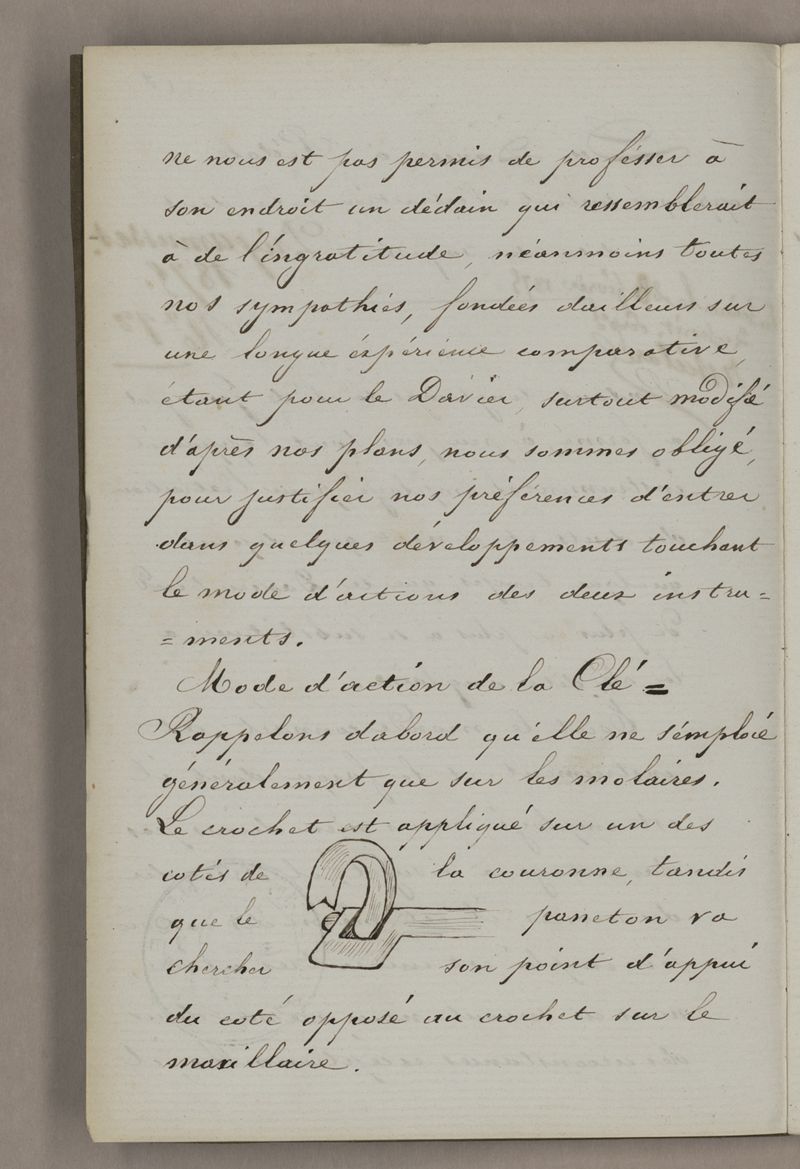 ne nous est pas permis de proféssér à
son endroit un dédain qui ressemblerait
à de l'ingratitude, néanmoins toutes
nos sympathiés, fondéés dailleurs sur
une longue éxpérience comparative,
étant pour le Daviér, surtout modifié
d'après nos plans, nous sommes obligé,
pour justifiér nos préférences d'entrer
dans quelques développements touchant
le mode d'actions des deux instru=
=ments.
Mode d'action de la Clé =
Rappelons dabord qu'élle ne s'émploié
généralement que sur les molaires.
Le crochet est appliqué sur un des
cotés de la couronne, tandis
que le panéton va
chercher son point d'appui
du coté opposé au crochet sur le
maxillaire.